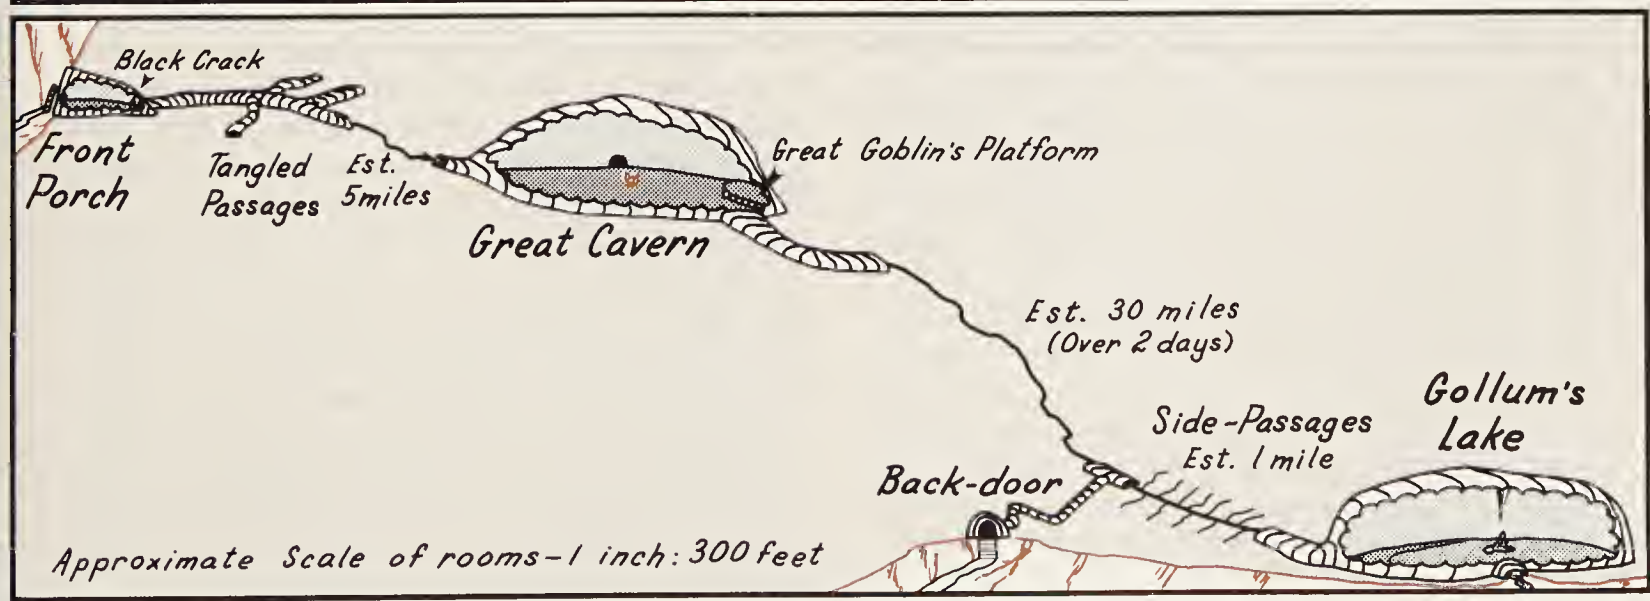 Black Crack
Front
Porch
Tangled
Passages
Est.
5miles
Great Goblin's Platform
Great Cavern
Est. 30 miles
(Over 2 days)
Gollum's
Lake
Side-Passages
Est. 1 mile
Back-door
Approximate Scale of rooms-1 inch: 300 feet